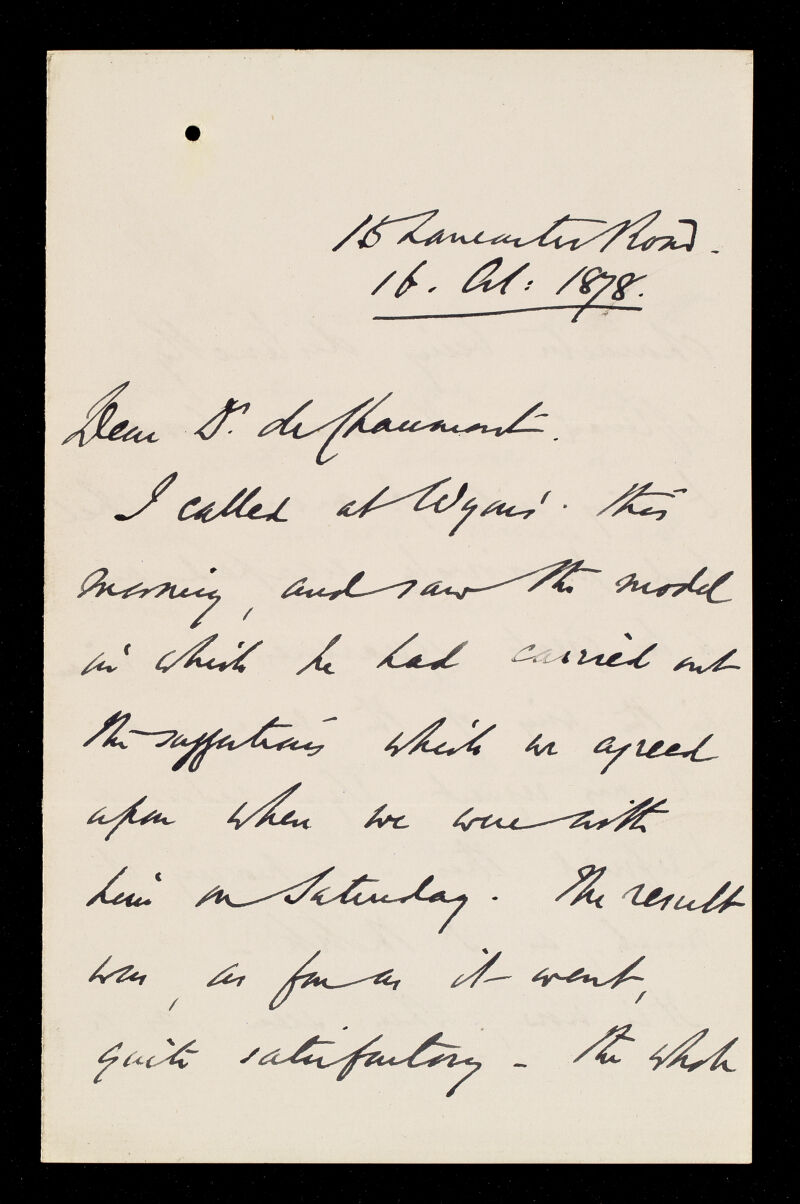 15 Lancaster Road.
16. Oct: 1878.
Dear Dr. de Chaumont.
I called at Wyons'. this
morning, and saw the model
in which he had carried out
the suggestions which we agreed
upon when we were with
him on Saturday. The result
was, as far as it went,
quite satisfactory - the whole